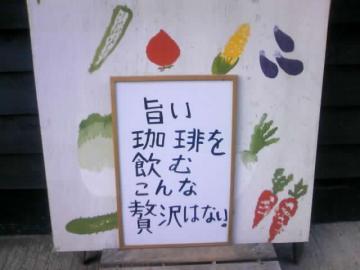 旨い
珈琲を
飲む
こんな
贅沢はない!